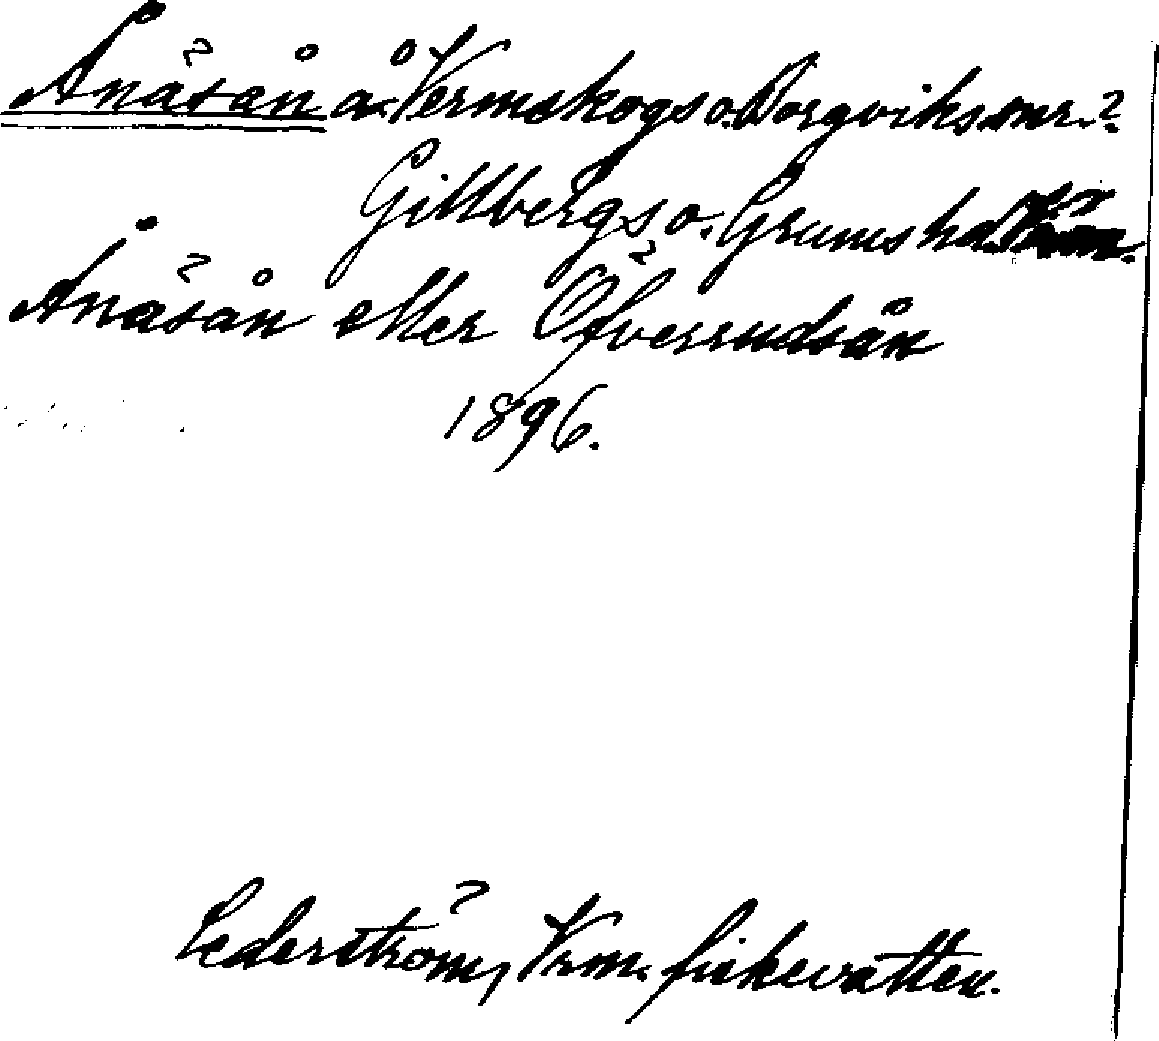 Ånäsån å. Vermskogs o. Borgviks snr.?
Gillbergs o. Grums hd
Ånäsån eller Öfverrudsån
1896.
Cederström, Vrm. fiskevatten.